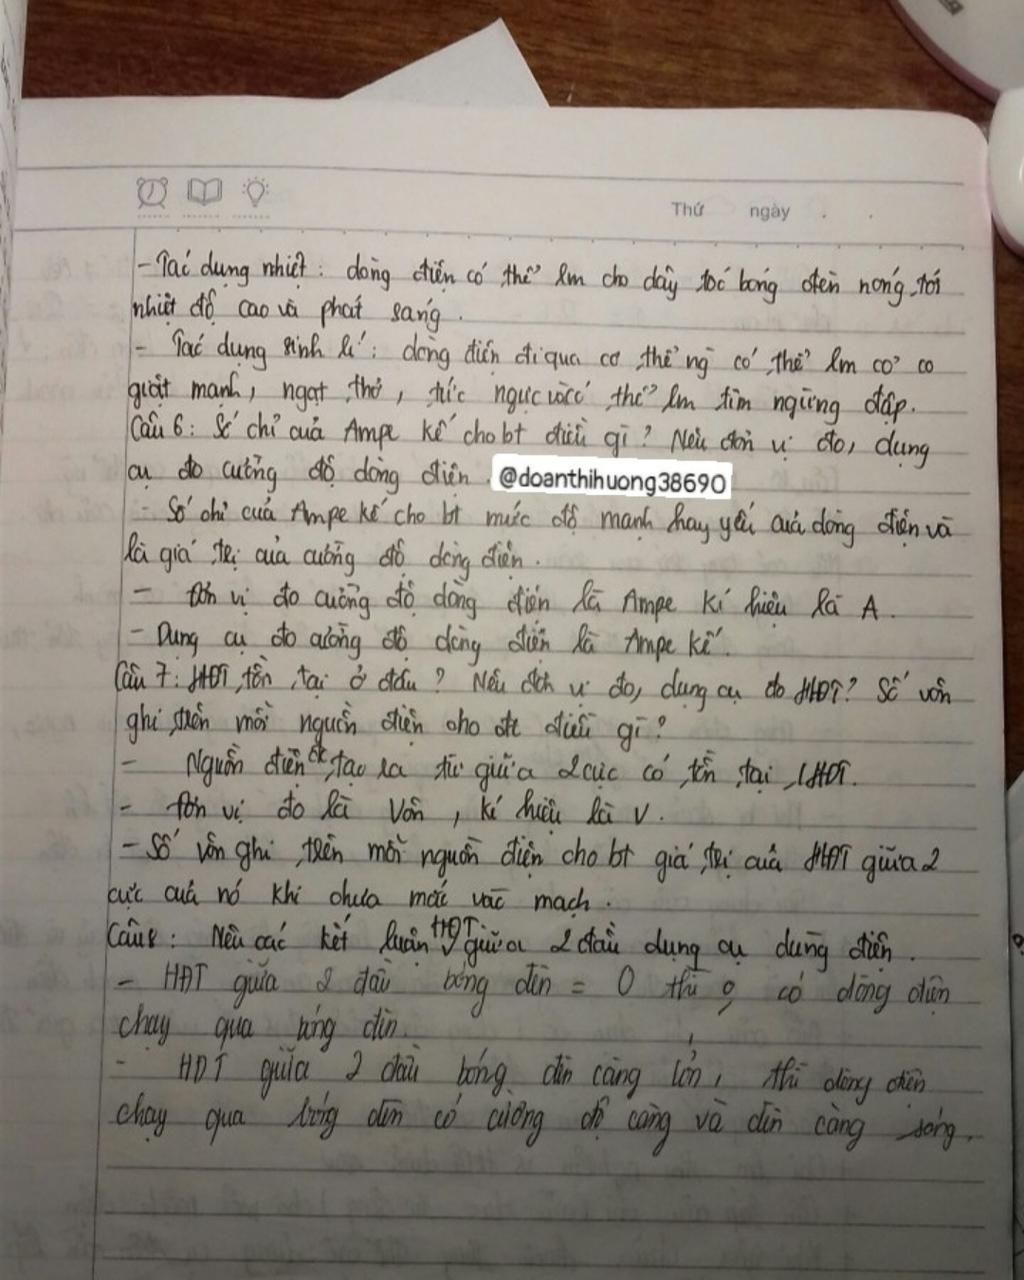 Thứ ngày . .
- Tác dụng nhiệt : dòng điện có thể lm cho dây tóc bóng đèn nóng tới
nhiệt độ cao và phát sáng .
- Tác dụng sinh lí : dòng điện đi qua cơ thể ng có thể lm cơ co
giật mạnh , ngạt thở , tức ngực và có thể lm tim ngừng đập .
Câu 6 : Số chỉ của Ampe kế cho bt điều gì ? Nêu đơn vị đo, dụng
cụ đo cường độ dòng điện .
@doanthihuong38690
- Số chỉ của Ampe kế cho bt mức độ mạnh hay yếu của dòng điện và
là giá trị của cường độ dòng điện .
- Đơn vị đo cường độ dòng điện là Ampe kí hiệu là A .
- Dụng cụ đo cường độ dòng điện là Ampe kế .
Câu 7 : HĐT tồn tại ở đâu ? Nêu đơn vị đo, dụng cụ đo HĐT ? Số vôn
ghi trên mỗi nguồn điện cho điều gì ?
- Nguồn điện đc tạo ra từ giữa 2 cực có tồn tại 1 HĐT .
- Đơn vị đo là Vôn , kí hiệu là V .
- Số vôn ghi trên mỗi nguồn điện cho bt giá trị của HĐT giữa 2
cực của nó khi chưa mắc vào mạch .
Câu 8 : Nêu các kết luận HĐT giữa 2 đầu dụng cụ dùng điện .
- HĐT giữa 2 đầu bóng đèn = 0 thì có dòng điện
chạy qua bóng đèn .
- HĐT giữa 2 đầu bóng đèn càng lớn , thì dòng điện
chạy qua bóng đèn có cường độ càng và đèn càng sáng .